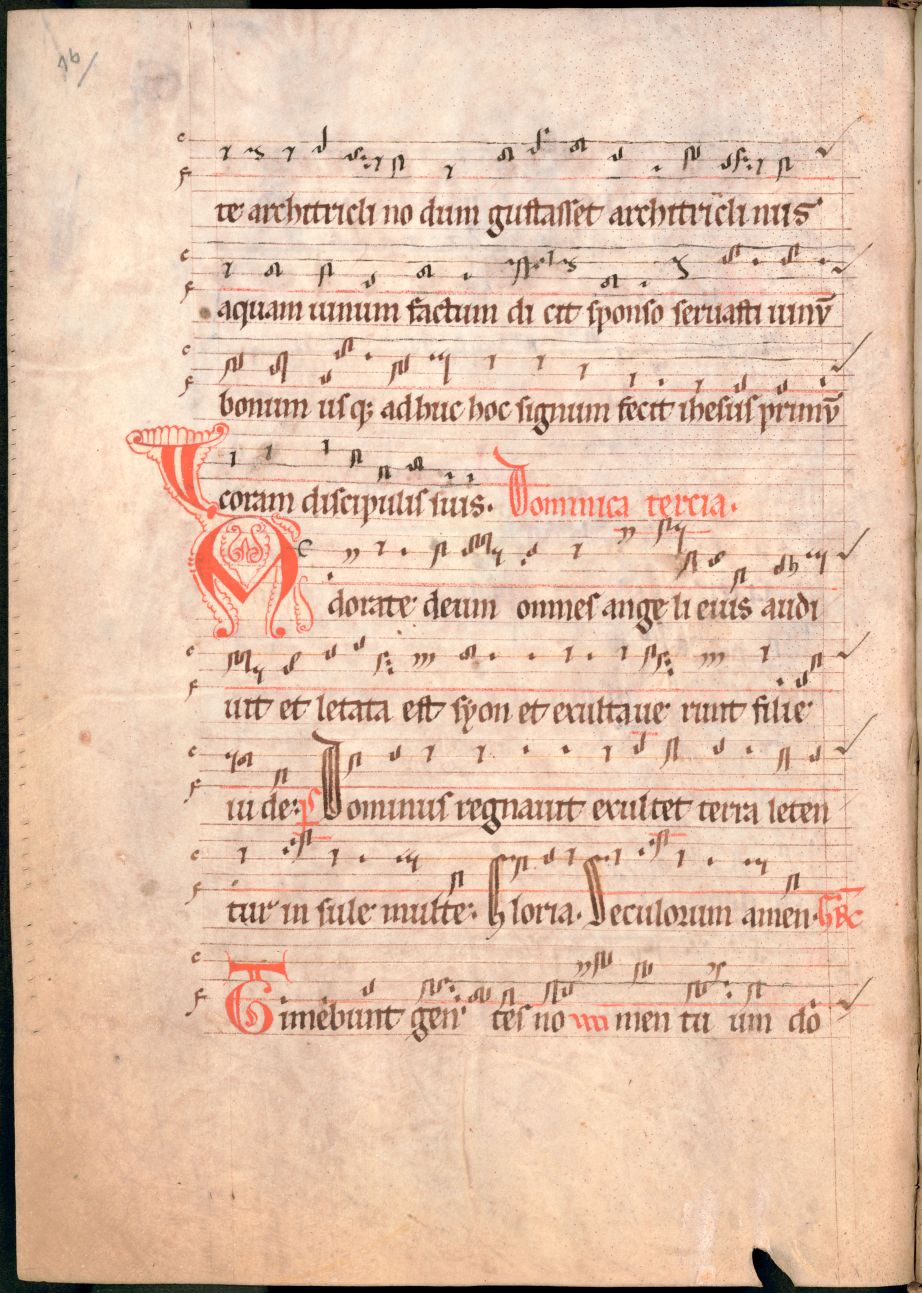 te architricli no dum gustasset architriclinus
aquam uinum factum di cit sponso seruasti uinū
bonum usq; adhuc hoc signum fecit ihesus primū
coram discipulis suis. Dominica tercia.
Adorate deum omnes ange li eius audi
uit et letata est syon et exultaue runt filie
iu de: ps Dominus regnauit exultet terra leten
tur in sule multe. Gloria. Seculorum amen. GRC
Timebunt gen tes no men tu um do